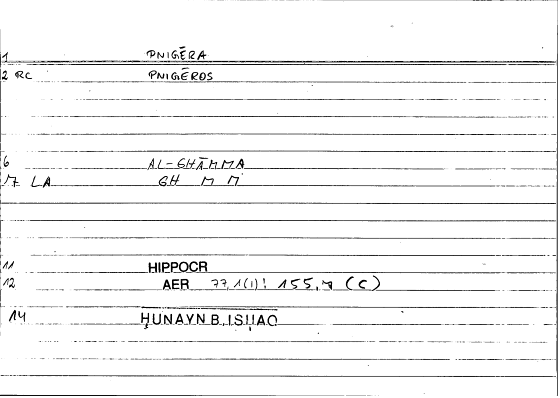 1 PNIGĒRA
2 RC PNIGĒROS
6 AL-GHĀMMA
7 LA GH M M
11 HIPPOCR
12 AER 77,1(1): 155,7 (C)
14 ḤUNAYN B. ISḤAQ